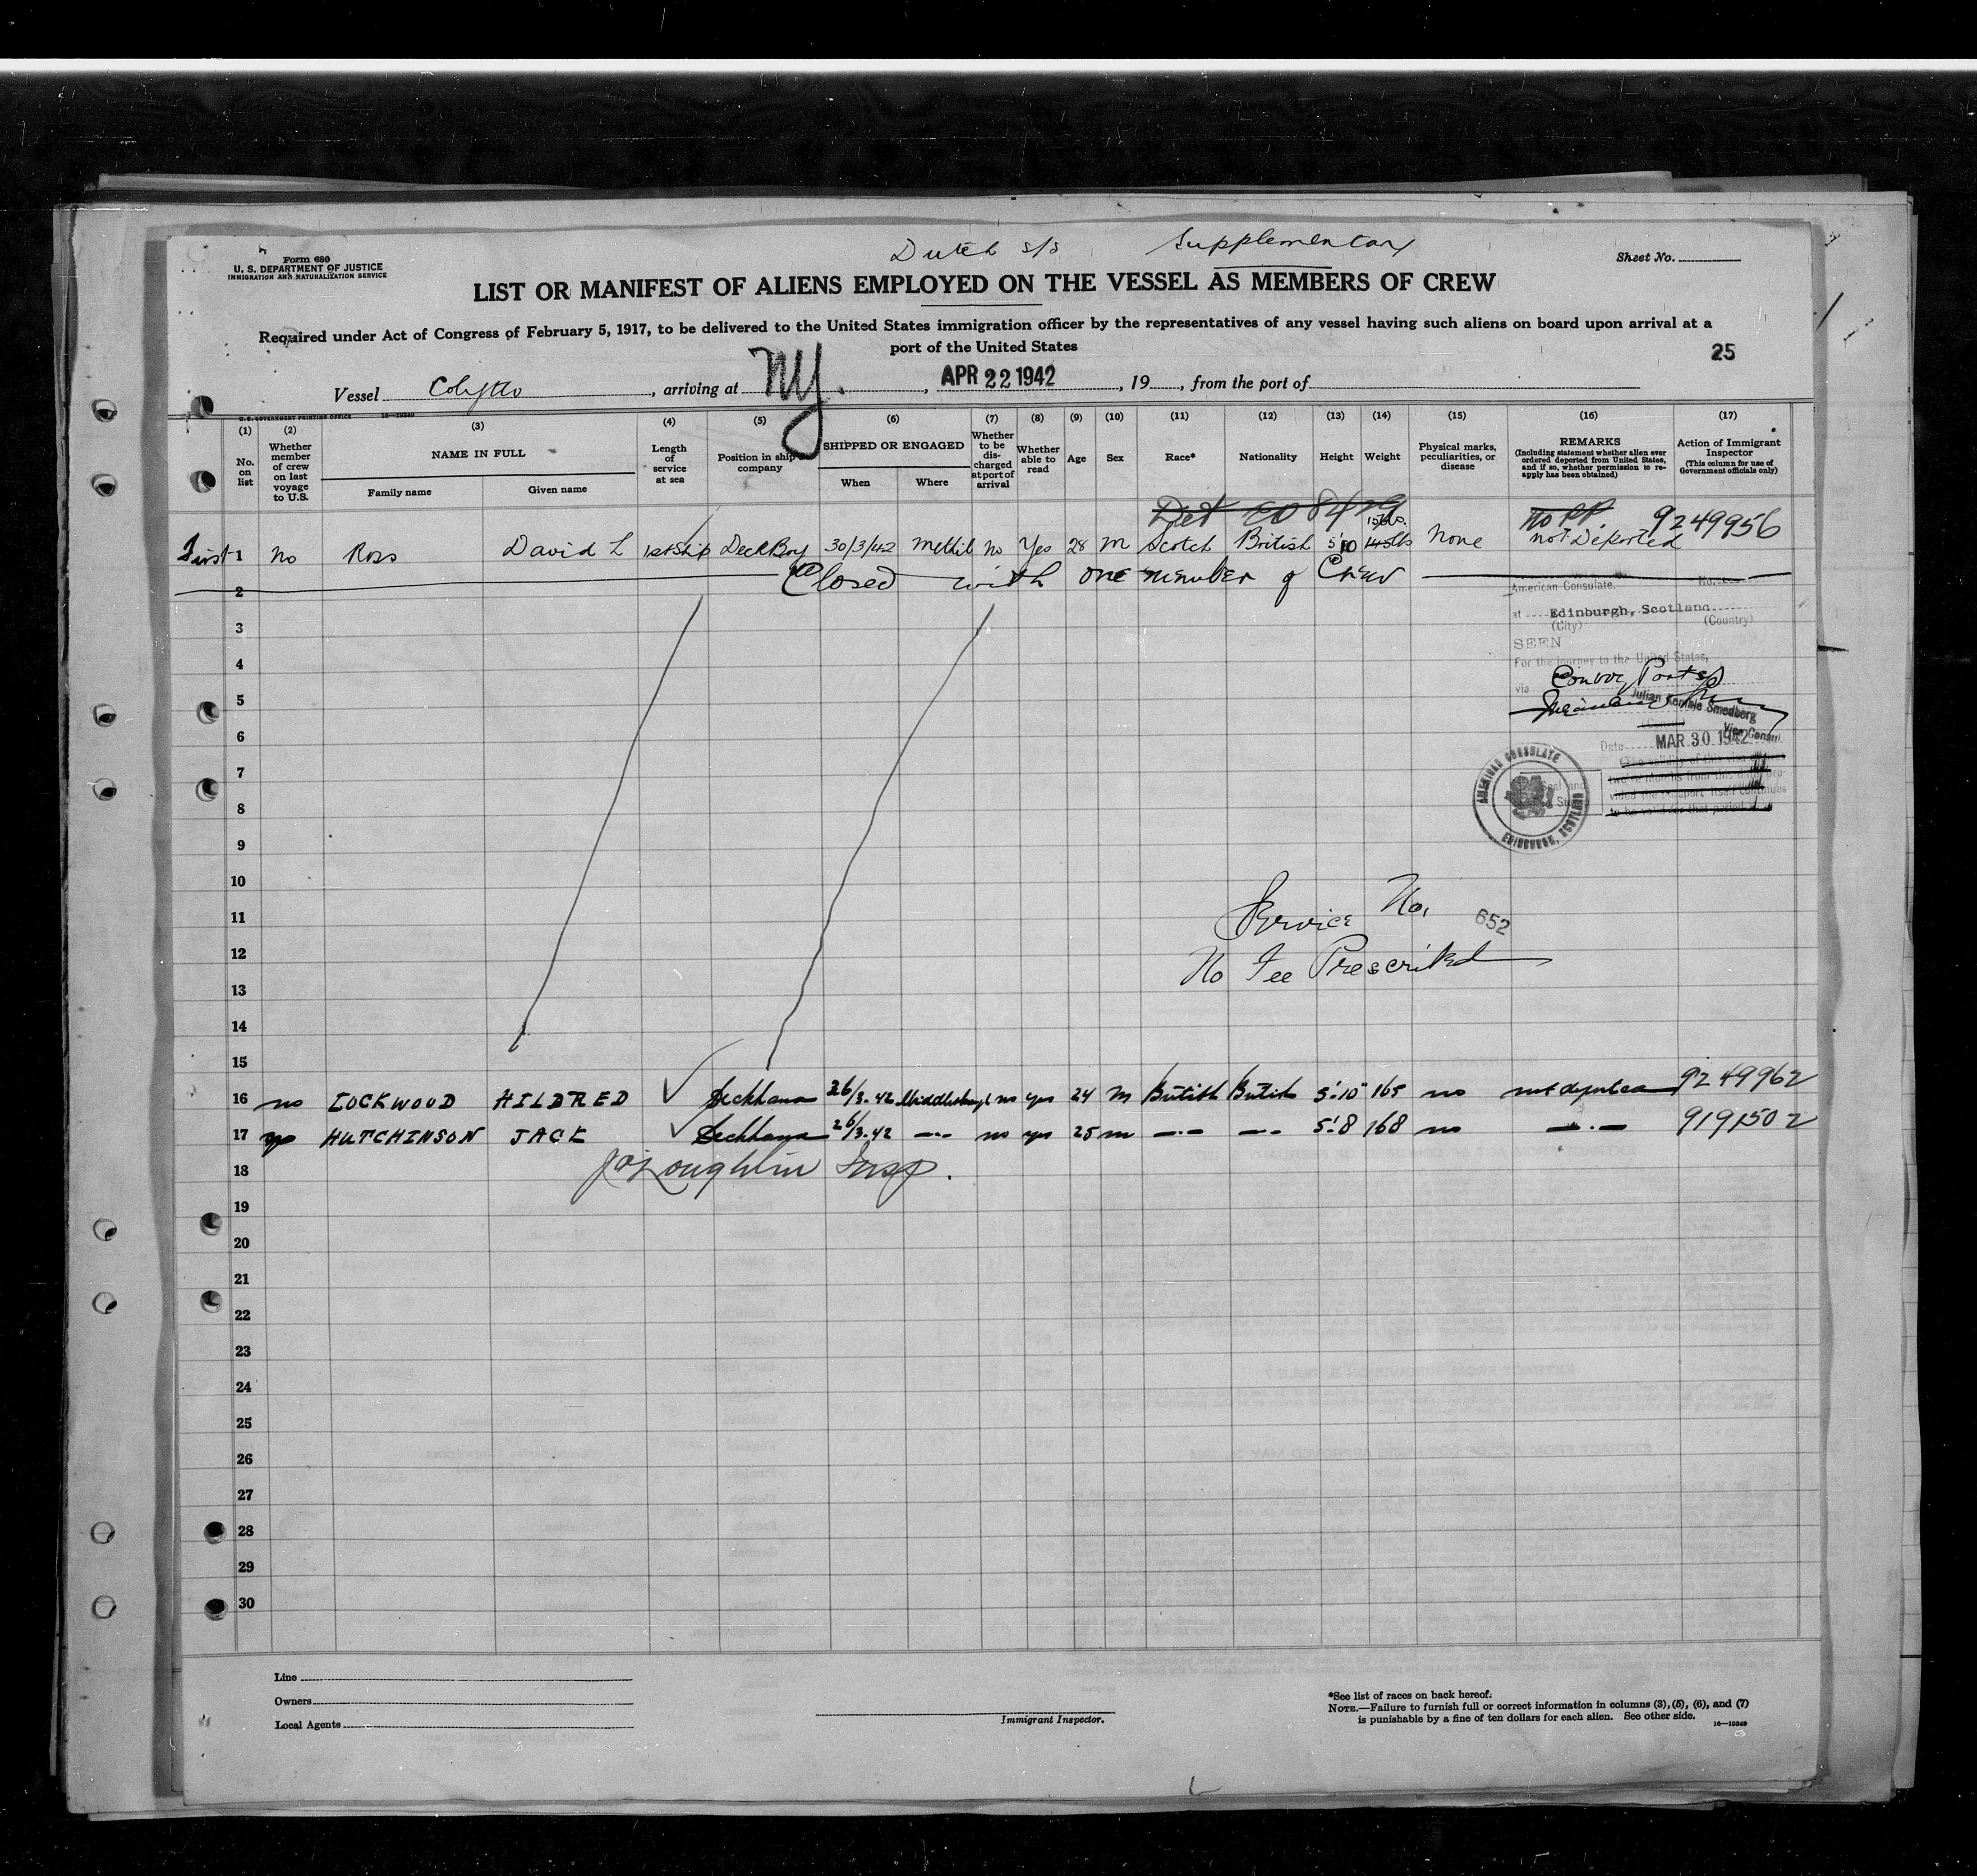 Dutch s/s Supplementary
Form 680
U. S. DEPARTMENT OF JUSTICE
IMMIGRATION AND NATURALIZATION SERVICE
Sheet No.
LIST OR MANIFEST OF ALIENS EMPLOYED ON THE VESSEL AS MEMBERS OF CREW
Required under Act of Congress of February 5, 1917, to be delivered to the United States immigration officer by the representatives of any vessel having such aliens on board upon arrival at a
port of the United States
25
Vessel Colytto, arriving at NY., APR 22 1942, 19, from the port of
U.S. GOVERNMENT PRINTING OFFICE 16—19349
(1) (2) (3) (4) (5) (6) (7) (8) (9) (10) (11) (12) (13) (14) (15) (16) (17)
No. on list
Whether member of crew on last voyage to U.S.
NAME IN FULL
Family name
Given name
Length of service at sea
Position in ship's company
SHIPPED OR ENGAGED
When
Where
Whether to be discharged at port of arrival
Whether able to read
Age
Sex
Race*
Nationality
Height
Weight
Physical marks, peculiarities, or disease
REMARKS
(Including statement whether alien ever ordered deported from United States, and if so, whether permission to re-apply has been obtained)
Action of Immigrant Inspector
(This column for use of Government officials only)
No PP. 9249956
First 1 no Ross David L 1st Ship Deck Boy 30/3/42 Methil no Yes 28 M Scotch British 5'10 145lbs None not Deported
2 Closed with one member of Crew
American Consulate. No.
3 at Edinburgh, Scotland.
(City) (Country)
SEEN
4 For the journey to the United States,
via Convoy Ports
5
Julian Kemble Smedberg
Vice Consul.
6 Date MAR 30 1942
7
8
AMERICAN CONSULATE
EDINBURGH, SCOTLAND
9
10
11 Service No. 652
12 No Fee Prescribed
13
14
15
16 no LOCKWOOD HILDRED Deckhand 26/3.42 Middlesbrough no yes 24 M British British 5'.10" 165 no not deported 9249962
17 yes HUTCHINSON JACK Deckhand 26/3.42 —.— no yes 25 m —.— —.— 5'.8 168 no —.— 9191502
18 J O'Loughlin Insp.
19
20
21
22
23
24
25
26
27
28
29
30
Line
Owners
Local Agents
Immigrant Inspector.
*See list of races on back hereof.
NOTE.—Failure to furnish full or correct information in columns (3), (5), (6), and (7)
is punishable by a fine of ten dollars for each alien. See other side. 16—19349